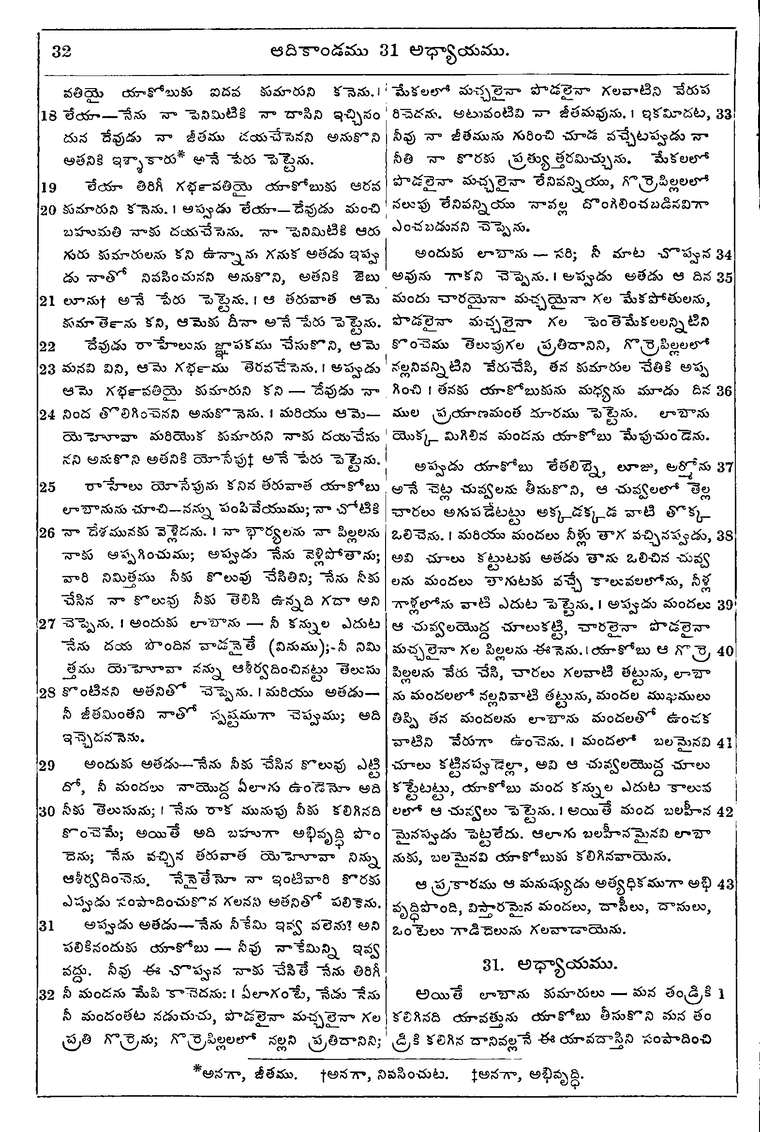 32 ఆదికాండము 31 అధ్యాయము.
వతియై యాకోబుకు ఐదవ కుమారుని కనెను.।
18 లేయా—నేను నా పెనిమిటికి నా దాసిని ఇచ్చినం
దున దేవుడు నా జీతము దయచేసెనని అనుకొని
అతనికి ఇశ్శాకారు* అనే పేరు పెట్టెను.
19 లేయా తిరిగీ గర్భవతియై యాకోబుకు ఆరవ
20 కుమారుని కనెను.। అప్పుడు లేయా—దేవుడు మంచి
బహుమతి నాకు దయచేసెను. నా పెనిమిటికి ఆరు
గురు కుమారులను కని ఉన్నాను గనుక అతడు ఇప్పు
డు నాతో నివసించునని అనుకొని, అతనికి జెబు
21 లూను† అనే పేరు పెట్టెను.। ఆ తరువాత ఆమె
కుమార్తెను కని, ఆమెకు దీనా అనే పేరు పెట్టెను.
22 దేవుడు రాహేలును జ్ఞాపకము చేసుకొని, ఆమె
23 మనవి విని, ఆమె గర్భము తెరవచేసెను.। అప్పుడు
ఆమె గర్భవతియై కుమారుని కని — దేవుడు నా
24 నింద తొలిగించెనని అనుకొనెను.। మరియు ఆమె—
యెహోవా మరియొక కుమారుని నాకు దయచేసు
నని అనుకొని అతనికి యోసేపు‡ అనే పేరు పెట్టెను.
25 రాహేలు యోసేపును కనిన తరువాత యాకోబు
లాబానును చూచి—నన్ను పంపివేయుము; నా చోటికి
26 నా దేశమునకు వెళ్లెదను.। నా భార్యలను నా పిల్లలను
నాకు అప్పగించుము; అప్పుడు నేను వెళ్లిపోతాను;
వారి నిమిత్తము నీకు కొలువు చేసితిని; నేను నీకు
చేసిన నా కొలువు నీకు తెలిసి ఉన్నది గదా అని
27 చెప్పెను.। అందుకు లాబాను — నీ కన్నుల ఎదుట
నేను దయ పొందిన వాడనైతే (వినుము);-నీ నిమి
త్తము యెహోవా నన్ను ఆశీర్వదించినట్టు తెలుసు
28 కొంటినని అతనితో చెప్పెను.।మరియు అతడు—
నీ జీతమింతని నాతో స్పష్టముగా చెప్పుము; అది
ఇచ్చెదననెను.
29 అందుకు అతడు—నేను నీకు చేసిన కొలువు ఎట్టి
దో, నీ మందలు నాయొద్ద ఏలాగు ఉండెనో అది
30 నీకు తెలుసును;। నేను రాక మునుపు నీకు కలిగినది
కొంచెమే; అయితే అది బహుగా అభివృద్ధి పొం
దెను; నేను వచ్చిన తరువాత యెహోవా నిన్ను
ఆశీర్వదించెను. నేనైతేనో నా ఇంటివారి కొరకు
ఎప్పుడు సంపాదించుకొన గలనని అతనితో పలికెను.
31 అప్పుడు అతడు—నేను నీకేమి ఇవ్వ వలెను? అని
పలికినందుకు యాకోబు — నీవు నాకేమిన్ని ఇవ్వ
వద్దు. నీవు ఈ చొప్పున నాకు చేసితే నేను తిరిగీ
32 నీ మందను మేపి కాచెదను:। ఏలాగంటే, నేడు నేను
నీ మందంతట నడుచుచు, పొడలైనా మచ్చలైనా గల
ప్రతి గొర్రెను; గొర్రెపిల్లలలో నల్లని ప్రతిదానిని;
మేకలలో మచ్చలైనా పొడలైనా గలవాటిని వేరుప
రిచెదను. అటువంటివి నా జీతమవును.। ఇకమీదట, 33
నీవు నా జీతమును గురించి చూడ వచ్చేటప్పుడు నా
నీతి నా కొరకు ప్రత్యుత్తరమిచ్చును. మేకలలో
పొడలైనా మచ్చలైనా లేనివన్నియు, గొర్రెపిల్లలలో
నలుపు లేనివన్నియు నావల్ల దొంగిలించబడినవిగా
ఎంచబడునని చెప్పెను.
అందుకు లాబాను — సరి; నీ మాట చొప్పున 34
అవును గాకని చెప్పెను.। అప్పుడు అతడు ఆ దిన 35
మందు చారయైనా మచ్చయైనా గల మేకపోతులను,
పొడలైనా మచ్చలైనా గల పెంతెమేకలలన్నిటిని
కొంచెము తెలుపుగల ప్రతిదానిని, గొర్రెపిల్లలలో
నల్లనివన్నిటిని వేరుచేసి, తన కుమారుల చేతికి అప్ప
గించి। తనకు యాకోబుకును మధ్యను మూడు దిన 36
ముల ప్రయాణమంత దూరము పెట్టెను. లాబాను
యొక్క మిగిలిన మందను యాకోబు మేపుచుండెను.
అప్పుడు యాకోబు లేతలిబ్నె, లూజు, అర్మోను 37
అనే చెట్ల చువ్వలను తీసుకొని, ఆ చువ్వలలో తెల్ల
చారలు అగుపడేటట్టు అక్కడక్కడ వాటి తొక్క
ఒలిచెను.। మరియు మందలు నీళ్లు తాగ వచ్చినప్పుడు, 38
అవి చూలు కట్టుటకు అతడు తాను ఒలిచిన చువ్వ
లను మందలు తాగుటకు వచ్చే కాలువలలోను, నీళ్ల
గాళ్లలోను వాటి ఎదుట పెట్టెను.। అప్పుడు మందలు 39
ఆ చువ్వలయొద్ద చూలుకట్టి, చారలైనా పొడలైనా
మచ్చలైనా గల పిల్లలను ఈనెను.।యాకోబు ఆ గొర్రె 40
పిల్లలను వేరు చేసి, చారలు గలవాటి తట్టును, లాబా
ను మందలలో నల్లనివాటి తట్టును, మందల ముఖములు
తిప్పి తన మందలను లాబాను మందలతో ఉంచక
వాటిని వేరుగా ఉంచెను.। మందలో బలమైనవి 41
చూలు కట్టినప్పుడెల్లా, అవి ఆ చువ్వలయొద్ద చూలు
కట్టేటట్టు, యాకోబు మంద కన్నుల ఎదుట కాలువ
లలో ఆ చువ్వలు పెట్టెను.। అయితే మంద బలహీన 42
మైనప్పుడు పెట్టలేదు. ఆలాగు బలహీనమైనవి లాబా
నుకు, బలమైనవి యాకోబుకు కలిగినవాయెను.
ఆ ప్రకారము ఆ మనుష్యుడు అత్యధికముగా అభి 43
వృద్ధిపొంది, విస్తారమైన మందలు, దాసీలు, దాసులు,
ఒంటెలు గాడిదెలును గలవాడాయెను.
31. అధ్యాయము.
అయితే లాబాను కుమారులు — మన తండ్రికి 1
కలిగినది యావత్తును యాకోబు తీసుకొని మన తం
డ్రికి కలిగిన దానివల్లనే ఈ యావదాస్తిని సంపాదించి
*అనగా, జీతము. †అనగా, నివసించుట. ‡అనగా, అభివృద్ధి.